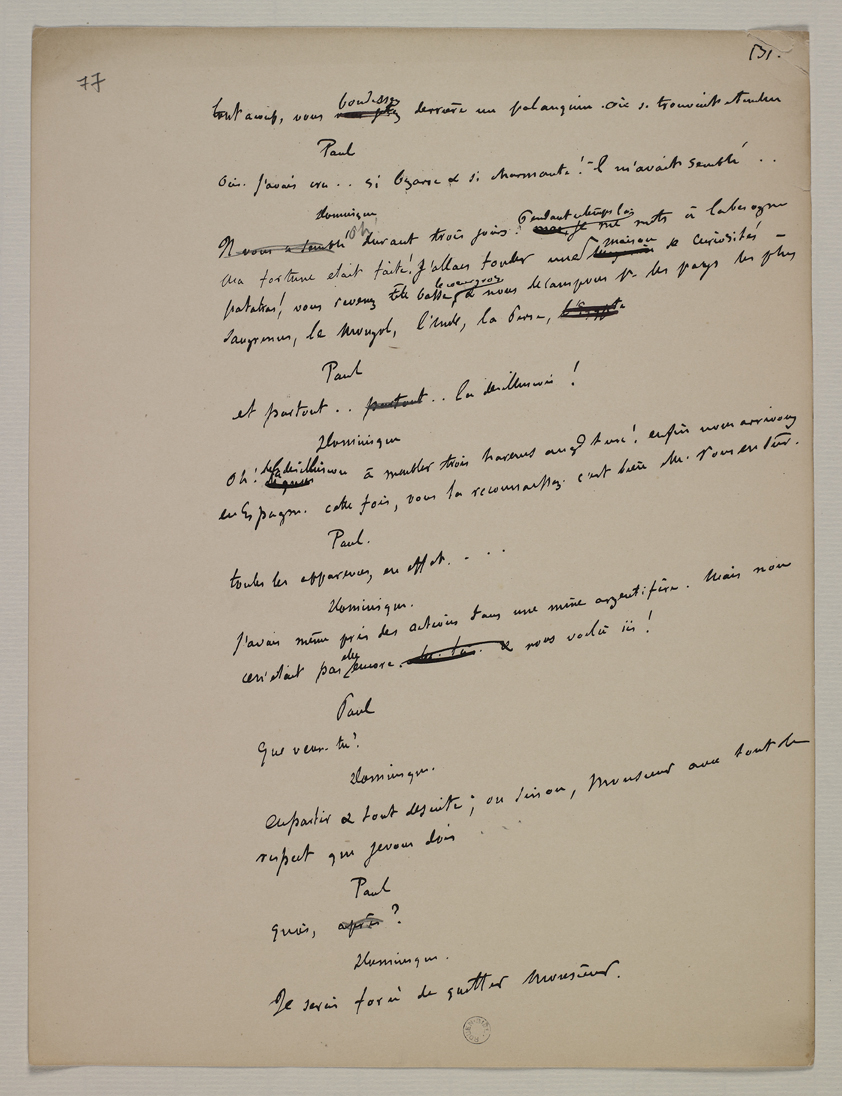 77
131.
tout ainsi, vous bondissez derrière un palanquin où se trouvait étendue
Paul
Oui. j'avais cru . . si bizarre & si charmante! Il m'avait semblé . .
Dominique
Il vous a semblé Oh! durant trois jours! Pendant ce temps là je me mets à la besogne
ma fortune était faite! J'allais fonder une maison de curiosités
patatras! vous revenez tête basse, & nous décampons pr les pays les plus
dangereux, le Mongol, l'Inde, la Perse, l'Egypte
Paul
et partout . . partout . . la désillusion!
Dominique
Oh! de la désillusion à meubler trois harems au gd turc! enfin nous arrivons
en Espagne. cette fois, vous la reconnaissez. c'est bien elle. vous en
Paul.
toutes les apparences, en effet. . . .
Dominique.
J'avais même pris des actions dans une mine argentifère. Mais non
ce n'était pas elle encore. & nous voilà ici!
Paul
Que veux-tu?
Dominique.
en partir & tout de suite; ou sinon, Monsieur avec tout le
respect que je vous dois . .
Paul
quoi, après?
Dominique.
Je serai forcé de quitter Monsieur.